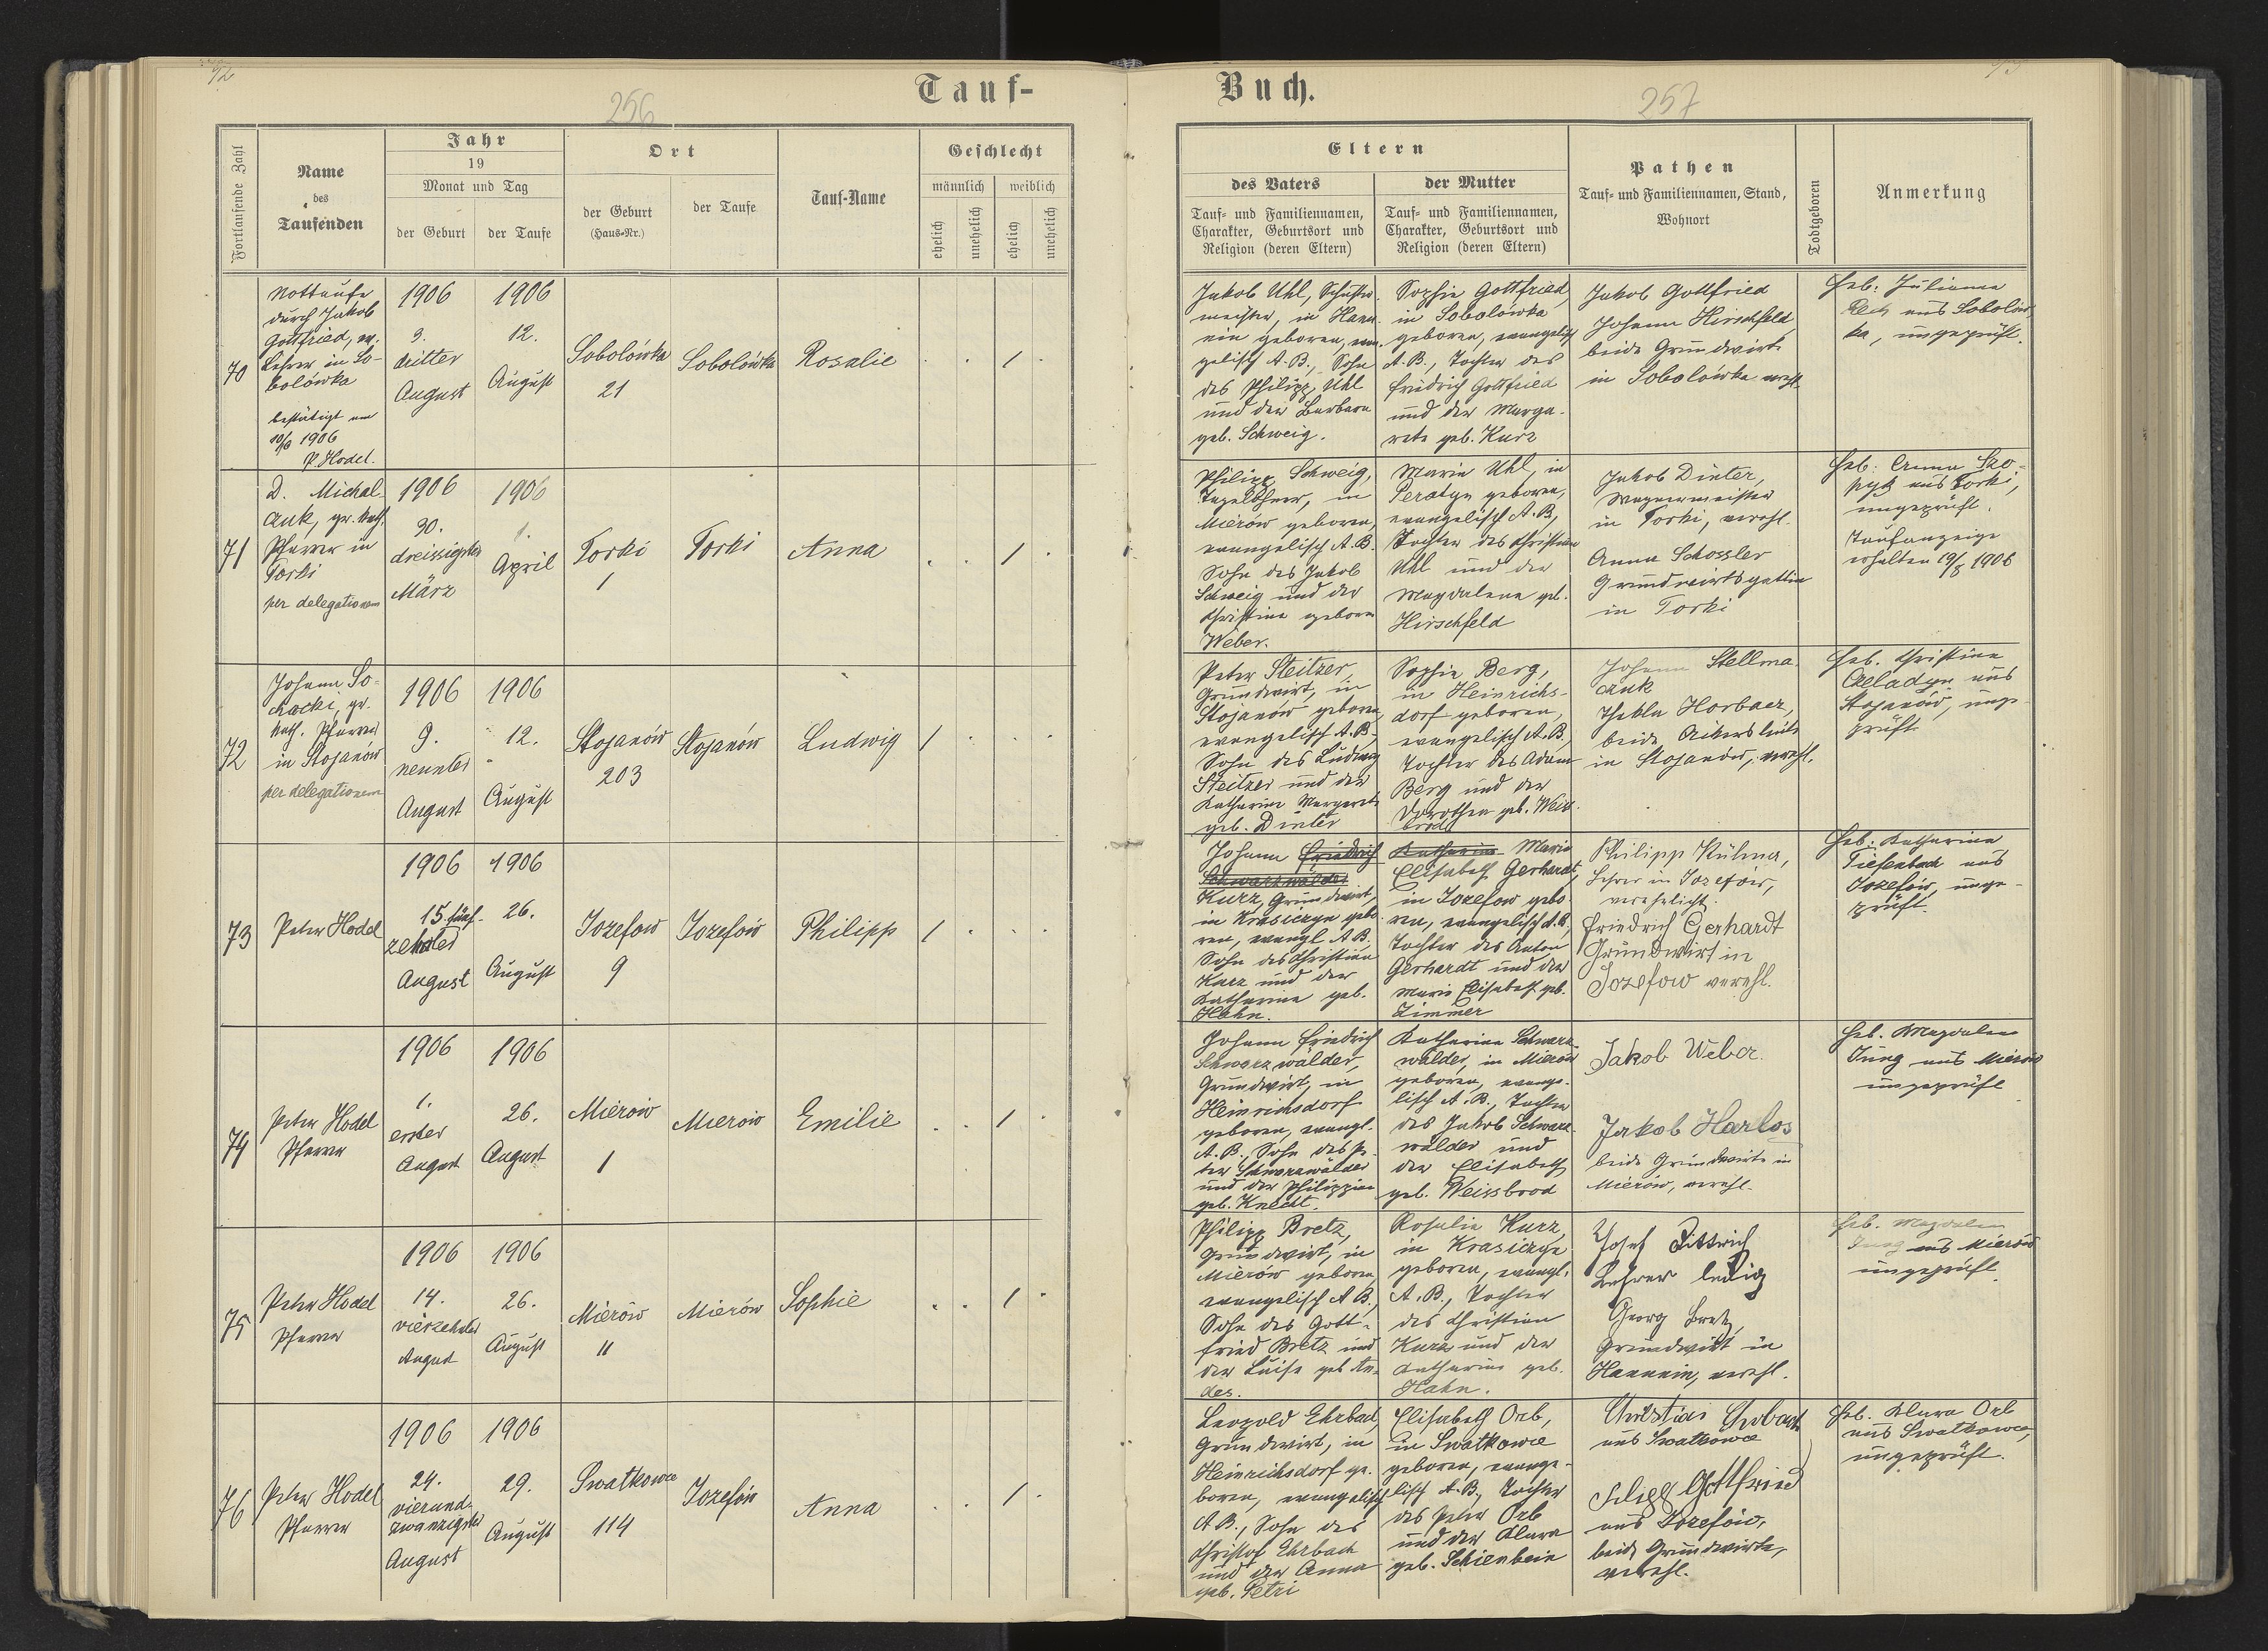 72
256
Tauf-
Fortlaufende Zahl
Name
des
Taufenden
Jahr
19
Monat und Tag
der Geburt
der Taufe
Ort
der Geburt
(Haus-Nr.)
der Taufe
Tauf-Name
Geschlecht
männlich
weiblich
ehelich
unehelich
ehelich
unehelich
70
Nottaufe
durch Jakob
Gottfried, ev.
Lehrer in So-
bolówka
bestätigt am
1906
P. Hodel.
1906
3.
dritter
August
1906
12.
August
Sobolówka
21
Sobolówka
Rosalie
71
D. Michal-
czuk, gr. kath.
Pfarrer in
Torki
per delegationem
1906
30.
dreissigster
März
1906
1.
April
Torki
1
Torki
Anna
72
Johann So-
chocki, gr.
kath. Pfarrer
in Stojanów
per delegationem
1906
9.
neunter
August
1906
12.
August
Stojanów
203
Stojanów
Ludwig
73
Peter Hodel
1906
15. fünf-
zehnter
August
1906
26.
August
Jozefow
9
Jozefów
Philipp
74
Peter Hodel
Pfarrer
1906
1.
erster
August
1906
26.
August
Mierów
1
Mierów
Emilie
75
Peter Hodel
Pfarrer
1906
14.
vierzehnter
August
1906
26.
August
Mierów
11
Mierów
Sophie
76
Peter Hodel
Pfarrer
1906
24.
vierund-
zwanzigster
August
1906
29.
August
Swatkowce
114
Jozefów
Anna
Buch.
257
Eltern
des Vaters
Tauf- und Familiennamen,
Charakter, Geburtsort und
Religion (deren Eltern)
der Mutter
Tauf- und Familiennamen,
Charakter, Geburtsort und
Religion (deren Eltern)
Pathen
Tauf- und Familiennamen, Stand,
Wohnort
Todtgeboren
Anmerkung
Jakob Uhl, Schuster-
meister, in Hanu-
nin geboren, evan-
gelisch A. B., Sohn
des Philipp Uhl
und der Barbara
geb. Schweig.
Sophie Gottfried,
in Sobolówka
geboren, evangelisch
A. B., Tochter des
Friedrich Gottfried
und der Marga-
rete geb. Kurz
Jakob Gottfried
Johann Hirschfeld,
beide Grundwirte
in Sobolówka, verehl.
Heb. Juliana
aus Sobolów-
ka, ungeprüft.
Philipp Schweig,
Tagelöhner, in
Mierów geboren,
evangelisch A. B.
Sohn des Jakob
Schweig und der
Christine geboren
Weber.
Marie Uhl, in
Peratyn geboren,
evangelisch A. B.,
Tochter des Christian
Uhl und der
Magdalena geb.
Hirschfeld
Jakob Dinter,
Wagnermeister
in Torki, verehl.
Anna Schossler
Grundwirtsgattin
in Torki
Heb. Anna
aus Torki,
ungeprüft.
Taufanzeige
erhalten 19/8 1906
Peter Steitzer,
Grundwirt, in
Stojanów geboren,
evangelisch A. B.
Sohn des Ludwig
Steitzer und der
Katharine Margarete
geb. Dinter
Sophie Berg,
in Heinrichs-
dorf geboren,
evangelisch A. B.,
Tochter des Adam
Berg und der
Dorothea geb. Weiss-
brod
Johann Stellma-
czuk
Thekla Horbacz,
beide Ackersleute
in Stojanów, verehl.
Heb. Christine
Czeladyn aus
Stojanów, unge-
prüft
Johann Friedrich
Schwarzwälder
Kurz, Grundwirt,
in Krasiczyn gebo-
ren, evangl. A. B.
Sohn des Christian
Kurz und der
Katharina geb.
Hahn.
Katharine Marie
Elisabeth Gerhardt,
in Jozefow gebo-
ren, evangelisch A. B.,
Tochter des Anton
Gerhardt und der
Marie Elisabeth geb.
Zimmer
Philipp Kühner,
Lehrer in Jozefów,
verehelicht
Friedrich Gerhardt
Grundwirt in
Jozefow verehl.
Heb. Katharina
Tiefenbach aus
Jozefów, unge-
prüft.
Johann Friedrich
Schwarzwälder,
Grundwirt, in
Heinrichsdorf
geboren, evangl.
A. B., Sohn des Pe-
ter Schwarzwälder
und der Philippine
geb. Knecht.
Katharine Schwarz-
wälder, in Mierów
geboren, evange-
lisch A. B., Tochter
des Jakob Schwarz-
wälder und
der Elisabeth
geb. Weissbrod
Jakob Weber.
Jakob Harlos
beide Grundwirte in
Mierów, verehl.
Heb. Magdalena
Jung aus Mierów
ungeprüft
Philipp Bretz,
Grundwirt, in
Mierów geboren,
evangelisch A. B.,
Sohn des Gott-
fried Bretz und
der Luise geb. An-
des.
Rosalie Kurz,
in Krasiczyn
geboren, evangl.
A. B., Tochter
des Christian
Kurz und der
Katharine geb.
Hahn.
Josef Dittrich
Lehrer ledig
Georg Bretz,
Grundwirt in
Hanunin, verehl.
Heb. Magdalena
Jung aus Mierów
ungeprüft.
Leopold Ehrbach,
Grundwirt, in
Heinrichsdorf ge-
boren, evangelisch
A. B., Sohn des
Christof Ehrbach
und der Anna
geb. Petri
Elisabeth Orb,
in Swatkowce
geboren, evange-
lisch A. B., Tochter
des Peter Orb
und der Klara
geb. Schienbein
Christian Ehrbach
aus Swatkowce
Filipp Gottfried
aus Jozefów,
beide Grundwirte,
verehl.
Heb. Klara Orb
aus Swatkowce,
ungeprüft.